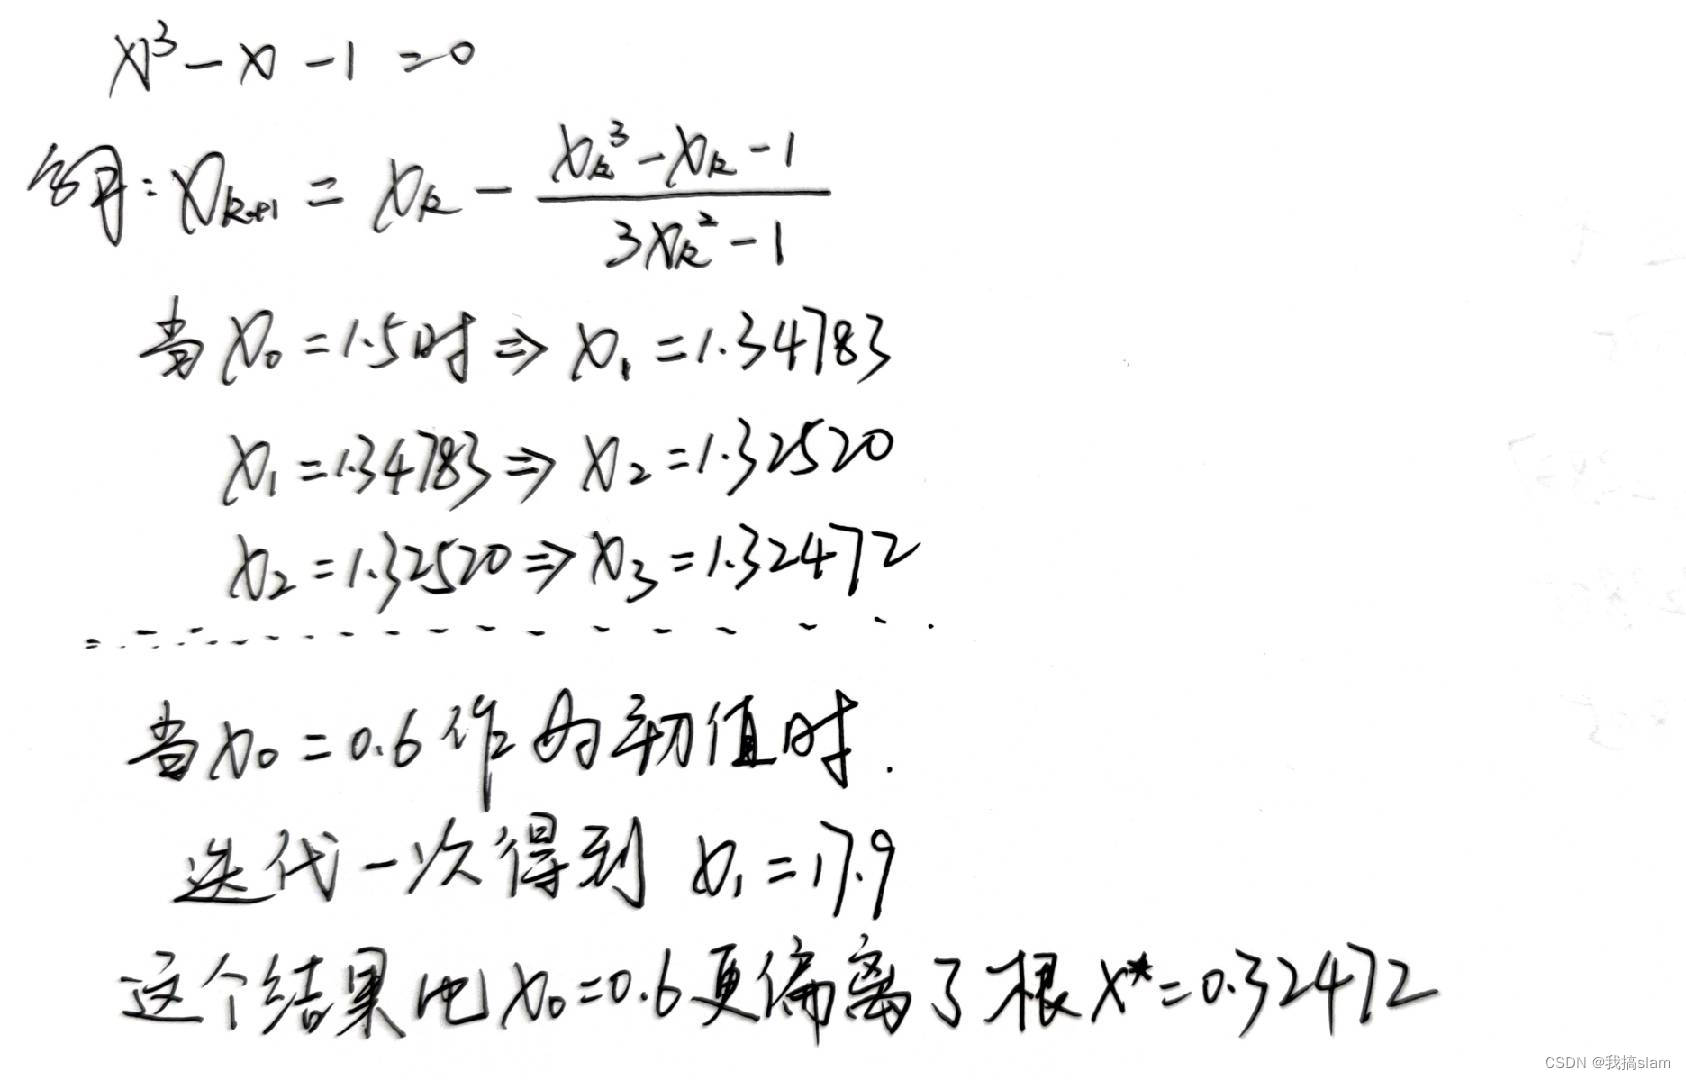 x³-x-1=0
解: xₖ₊₁ = xₖ - (xₖ³-xₖ-1)/(3xₖ²-1)
当x₀=1.5时⇒ x₁=1.34783
x₁=1.34783⇒ x₂=1.32520
x₂=1.32520⇒ x₃=1.32472
当x₀=0.6作为初值时.
迭代一次得到 x₁=17.9
这个结果比x₀=0.6更偏离了根x*=0.32472
CSDN @我搞slam